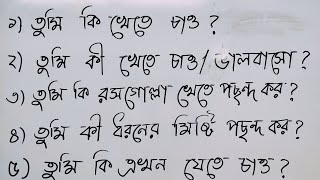 ১) তুমি কি খেতে চাও ?
২) তুমি কী খেতে চাও/ ভালবাসো ?
৩) তুমি কি রসগোল্লা খেতে পছন্দ কর ?
৪) তুমি কী ধরনের মিষ্টি পছন্দ কর ?
৫) তুমি কি এখন যেতে চাও ?